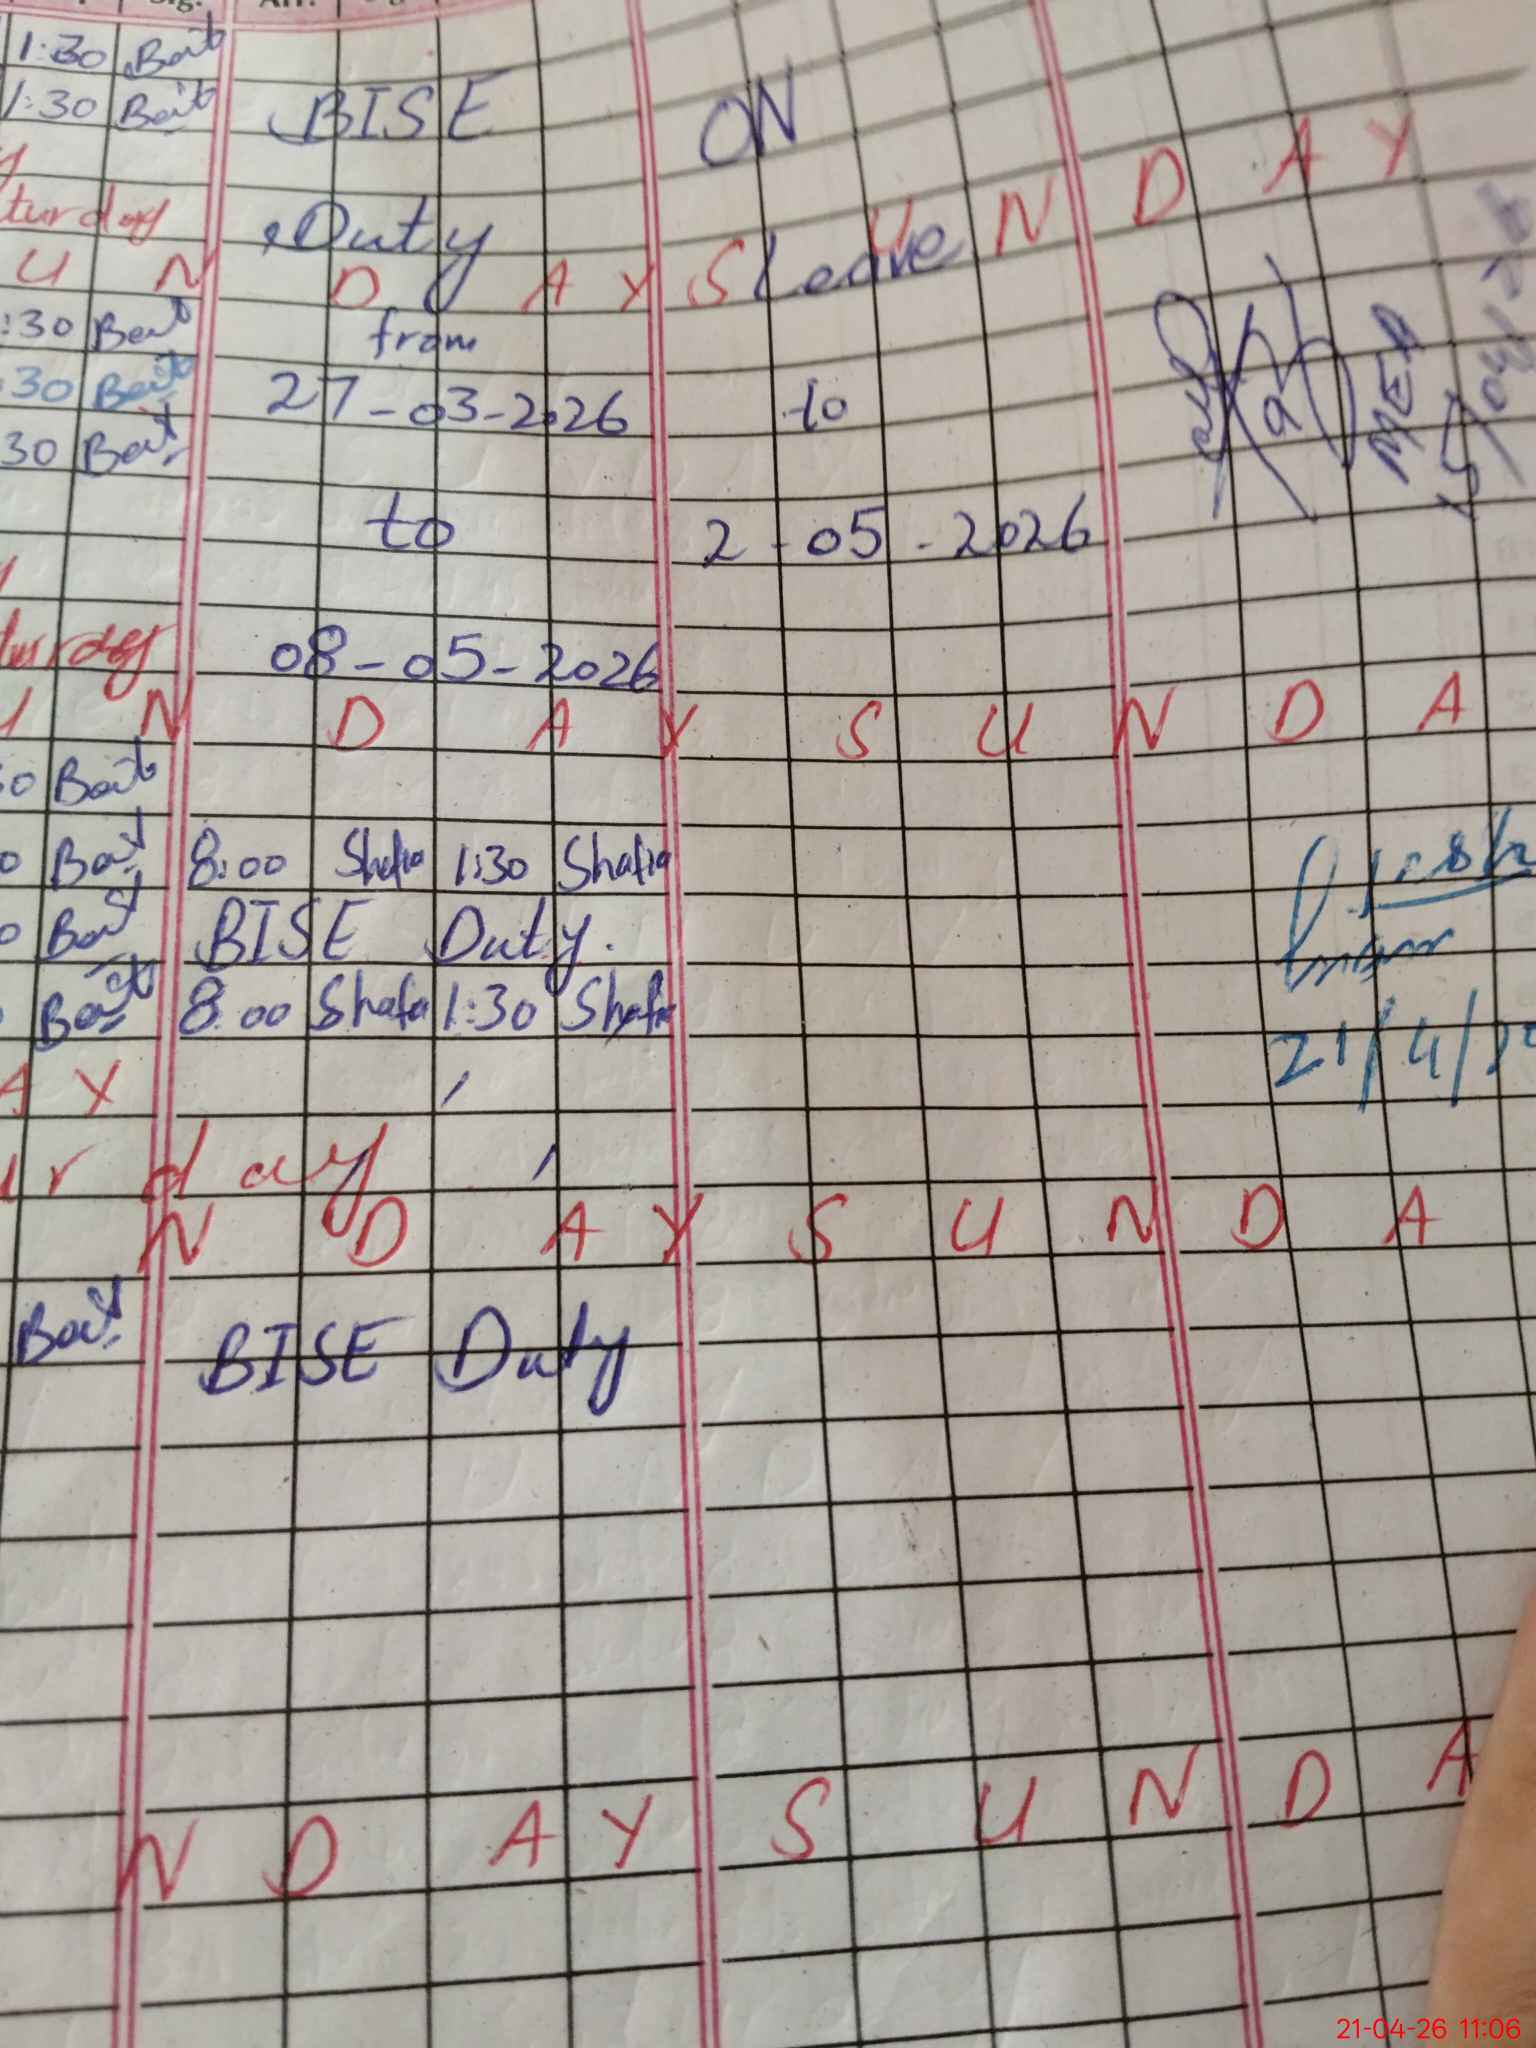 Sig. Arr.
1:30 Bait
1:30 Bait BISE ON
turday Duty Leave U N D A Y
U N D A Y S
:30 Bait from
:30 Bait 27-03-2026 to
30 Bait
to 2-05-2026
MEA
15/04/
08-05-2026
N D A Y S U N D A
0 Bait
0 Bait 8:00 Shafia 1:30 Shafia
0 Bait BISE Duty.
Bait 8:00 Shafia 1:30 Shafia
21/4/
A Y
ur day
N D A Y S U N D A
Bait BISE Duty
N D A Y S U N D A
21-04-26 11:06